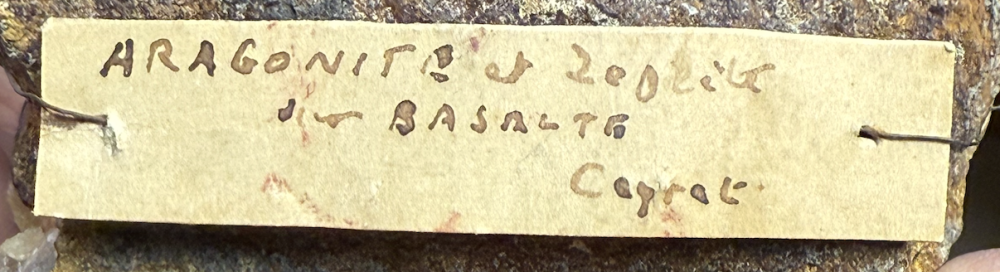 ARAGONITE et Zeolite
sur BASALTE
Ceyrat